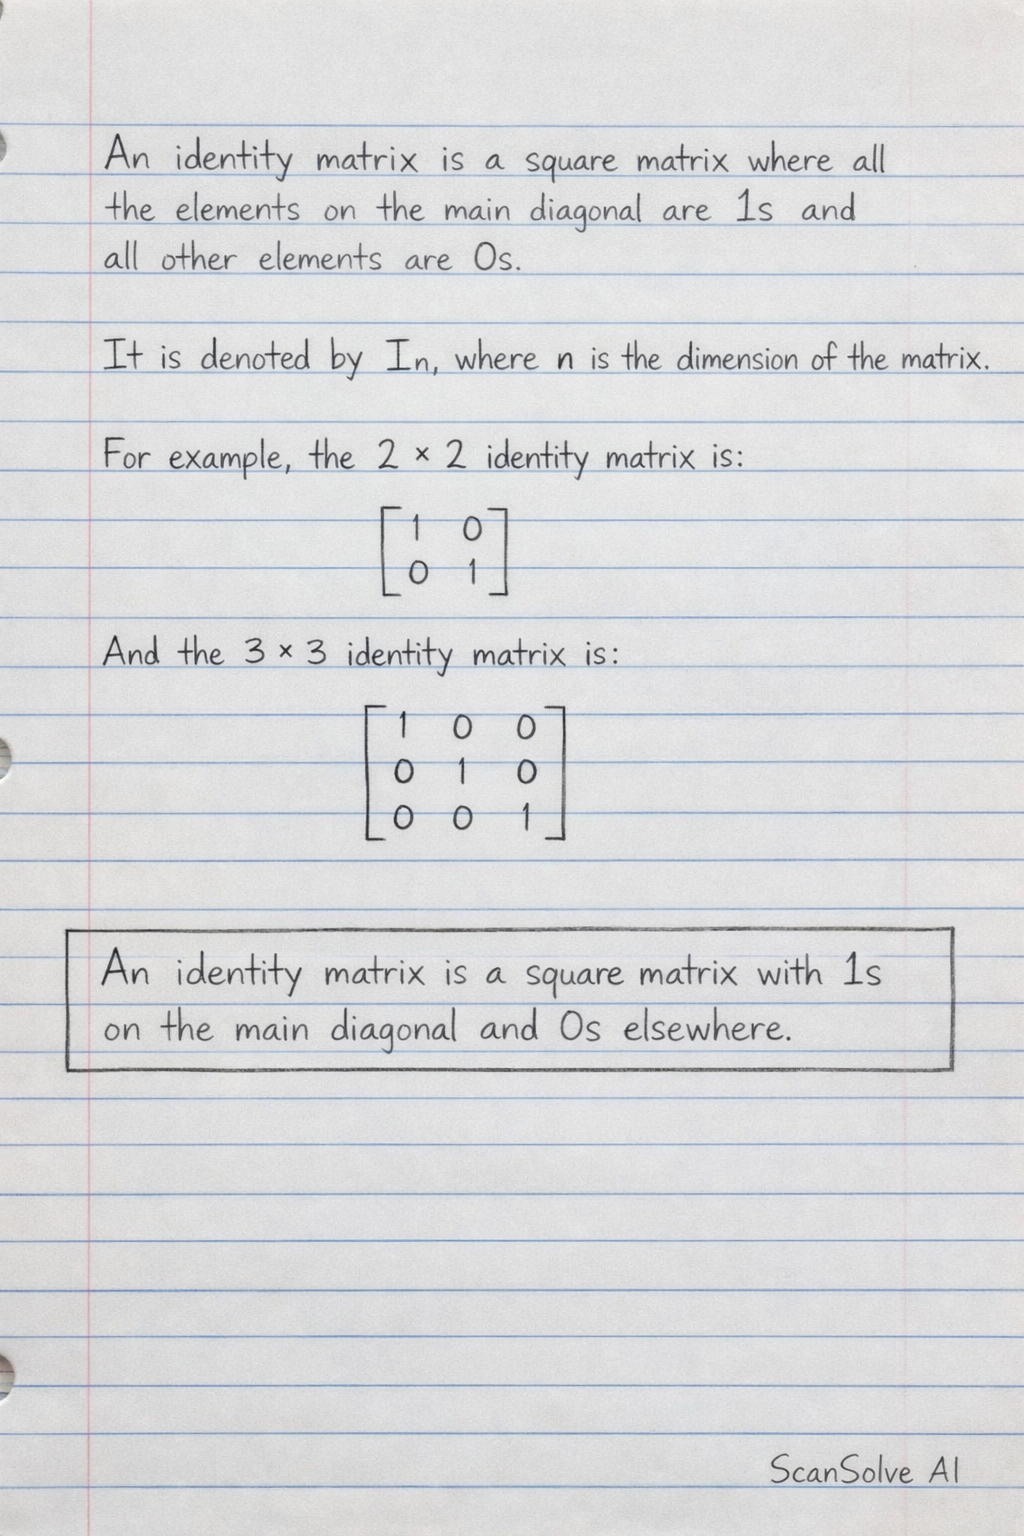 An identity matrix is a square matrix where all
the elements on the main diagonal are 1s and
all other elements are 0s.
It is denoted by In, where n is the dimension of the matrix.
For example, the 2 × 2 identity matrix is:
1 0
0 1
And the 3 × 3 identity matrix is:
1 0 0
0 1 0
0 0 1
An identity matrix is a square matrix with 1s
on the main diagonal and 0s elsewhere.
ScanSolve AI